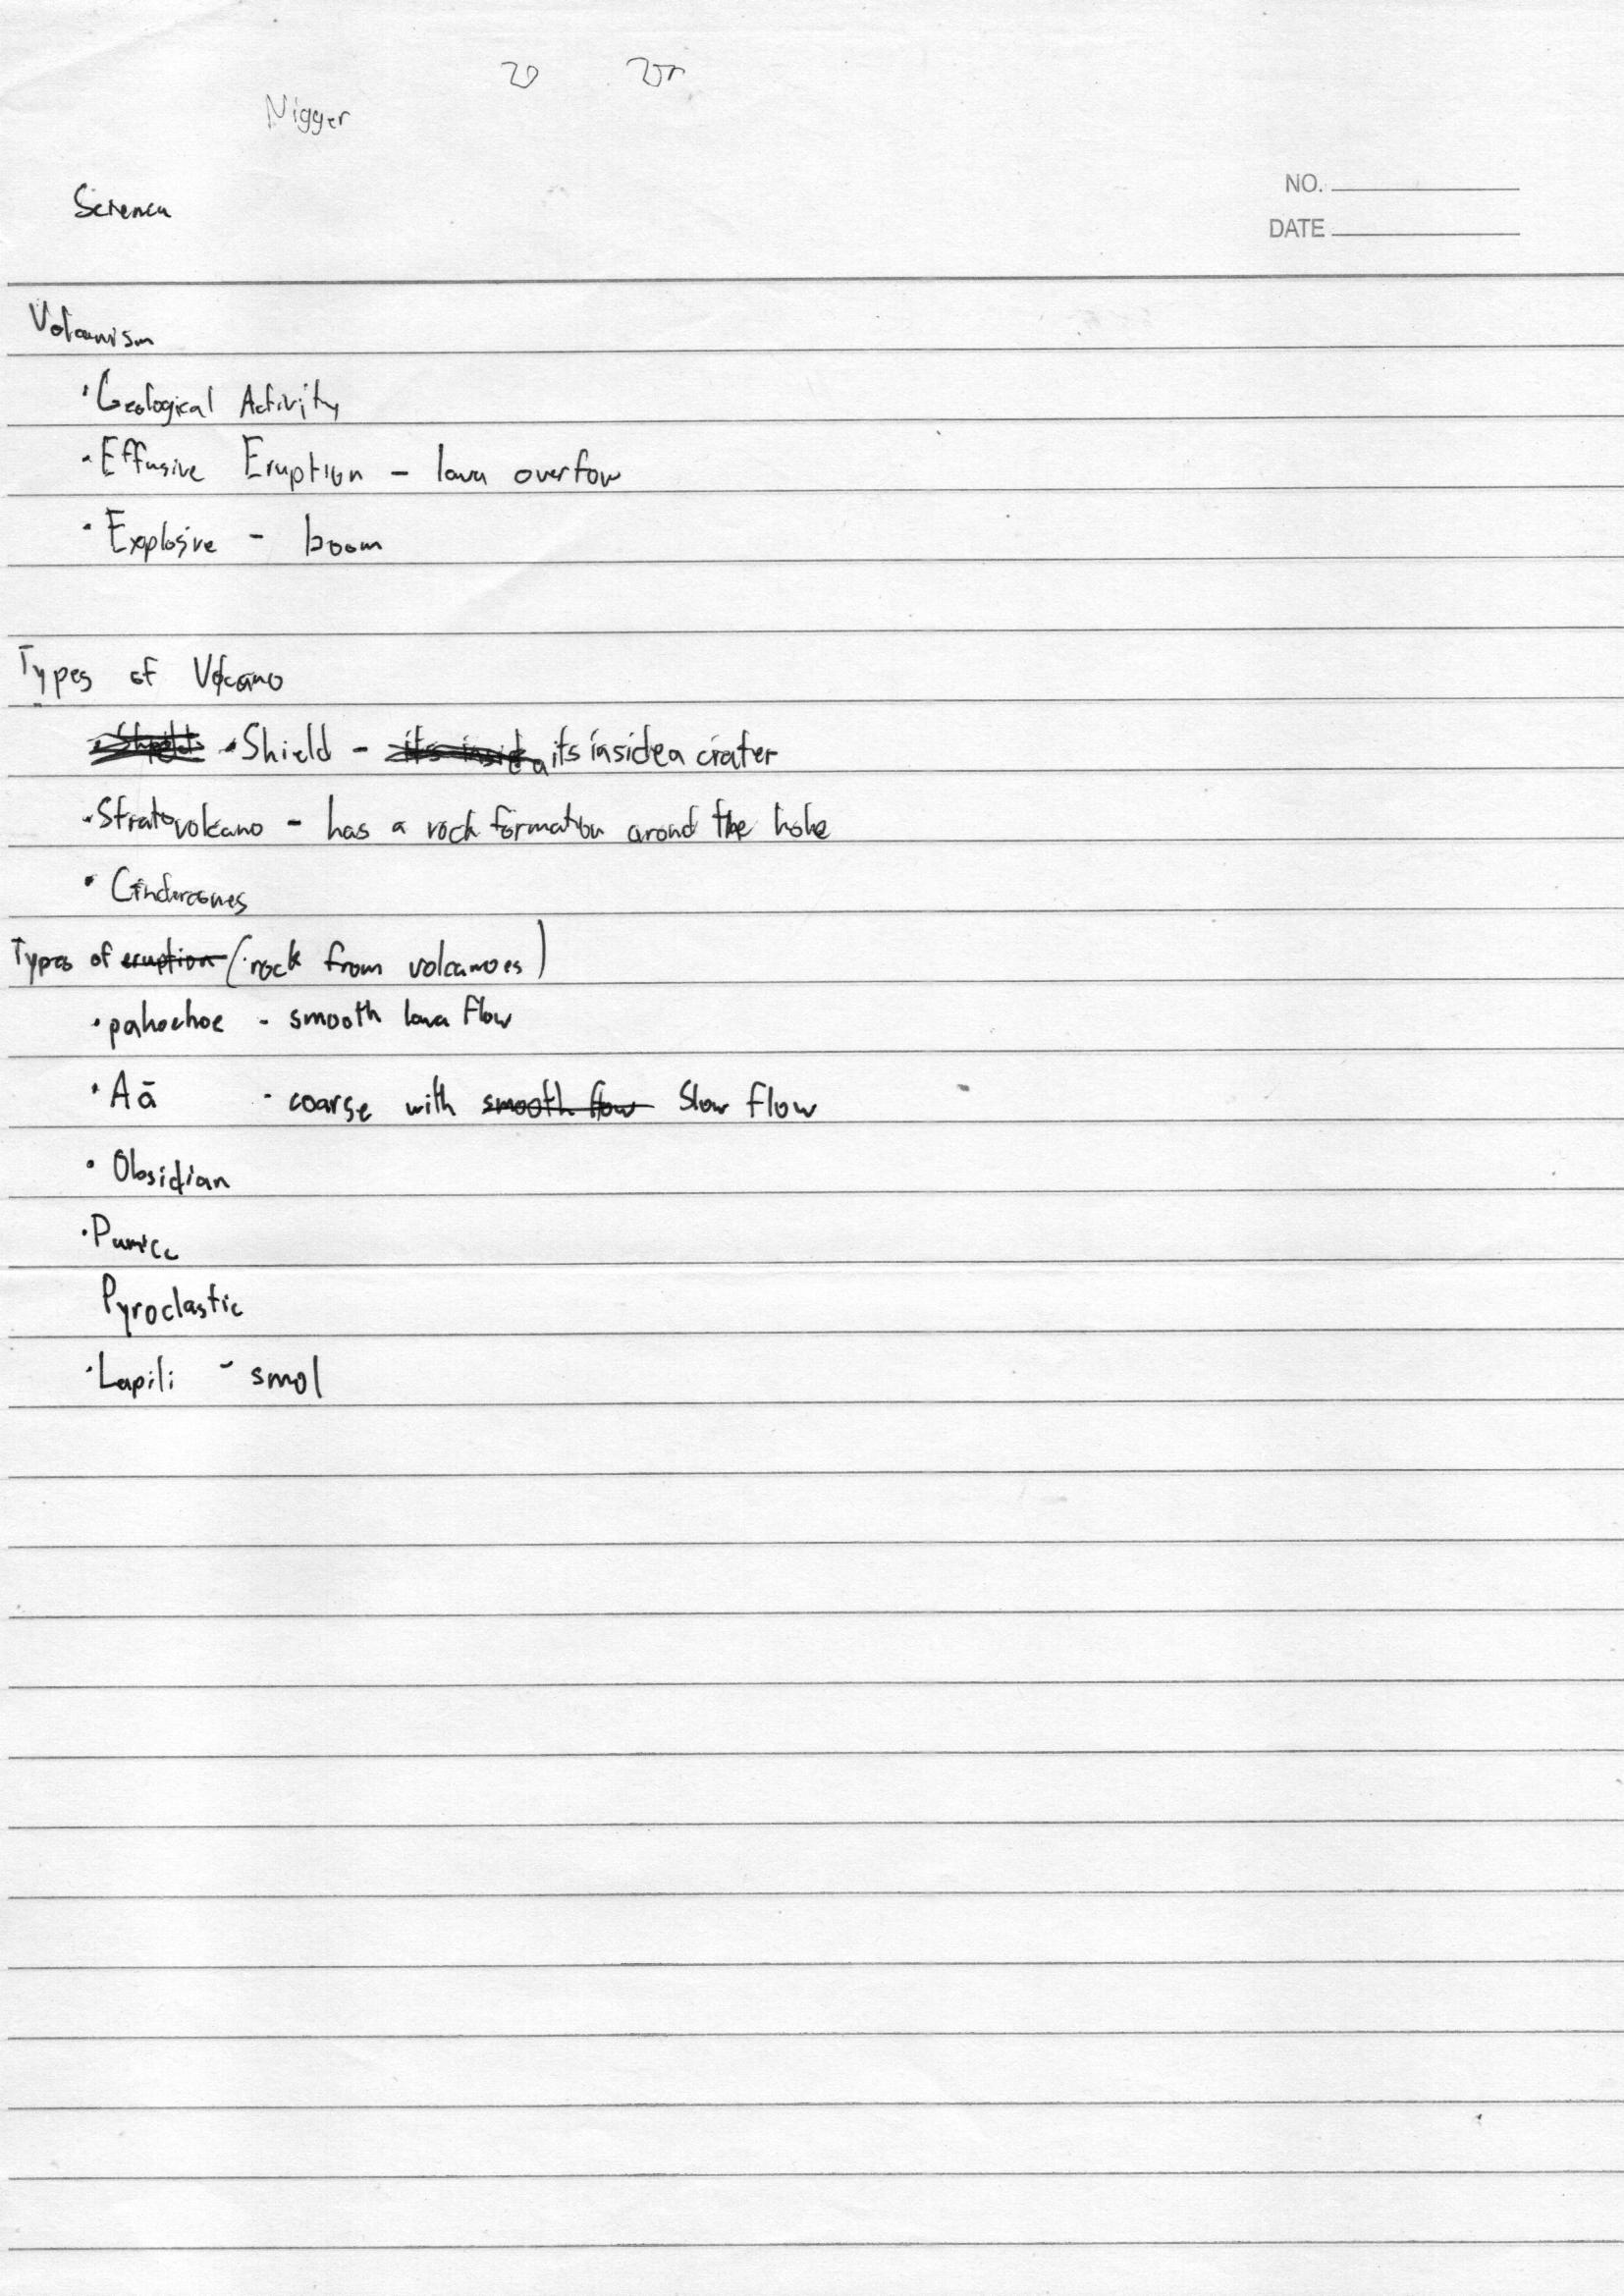 Nigger
Science
NO.
DATE
Volcanism
·Geological Activity
·Effusive Eruption - lava overfow
·Explosive - boom
Types of Volcano
·Shield - its inside a crater
·Stratovolcano - has a rock formation arond the hole
·Cindercones
Types of eruption (rock from volcanoes)
·pahoehoe - smooth lava flow
·Aā - coarse with smooth flow Slow flow
·Obsidian
·Pumice
Pyroclastic
·Lapili - smol